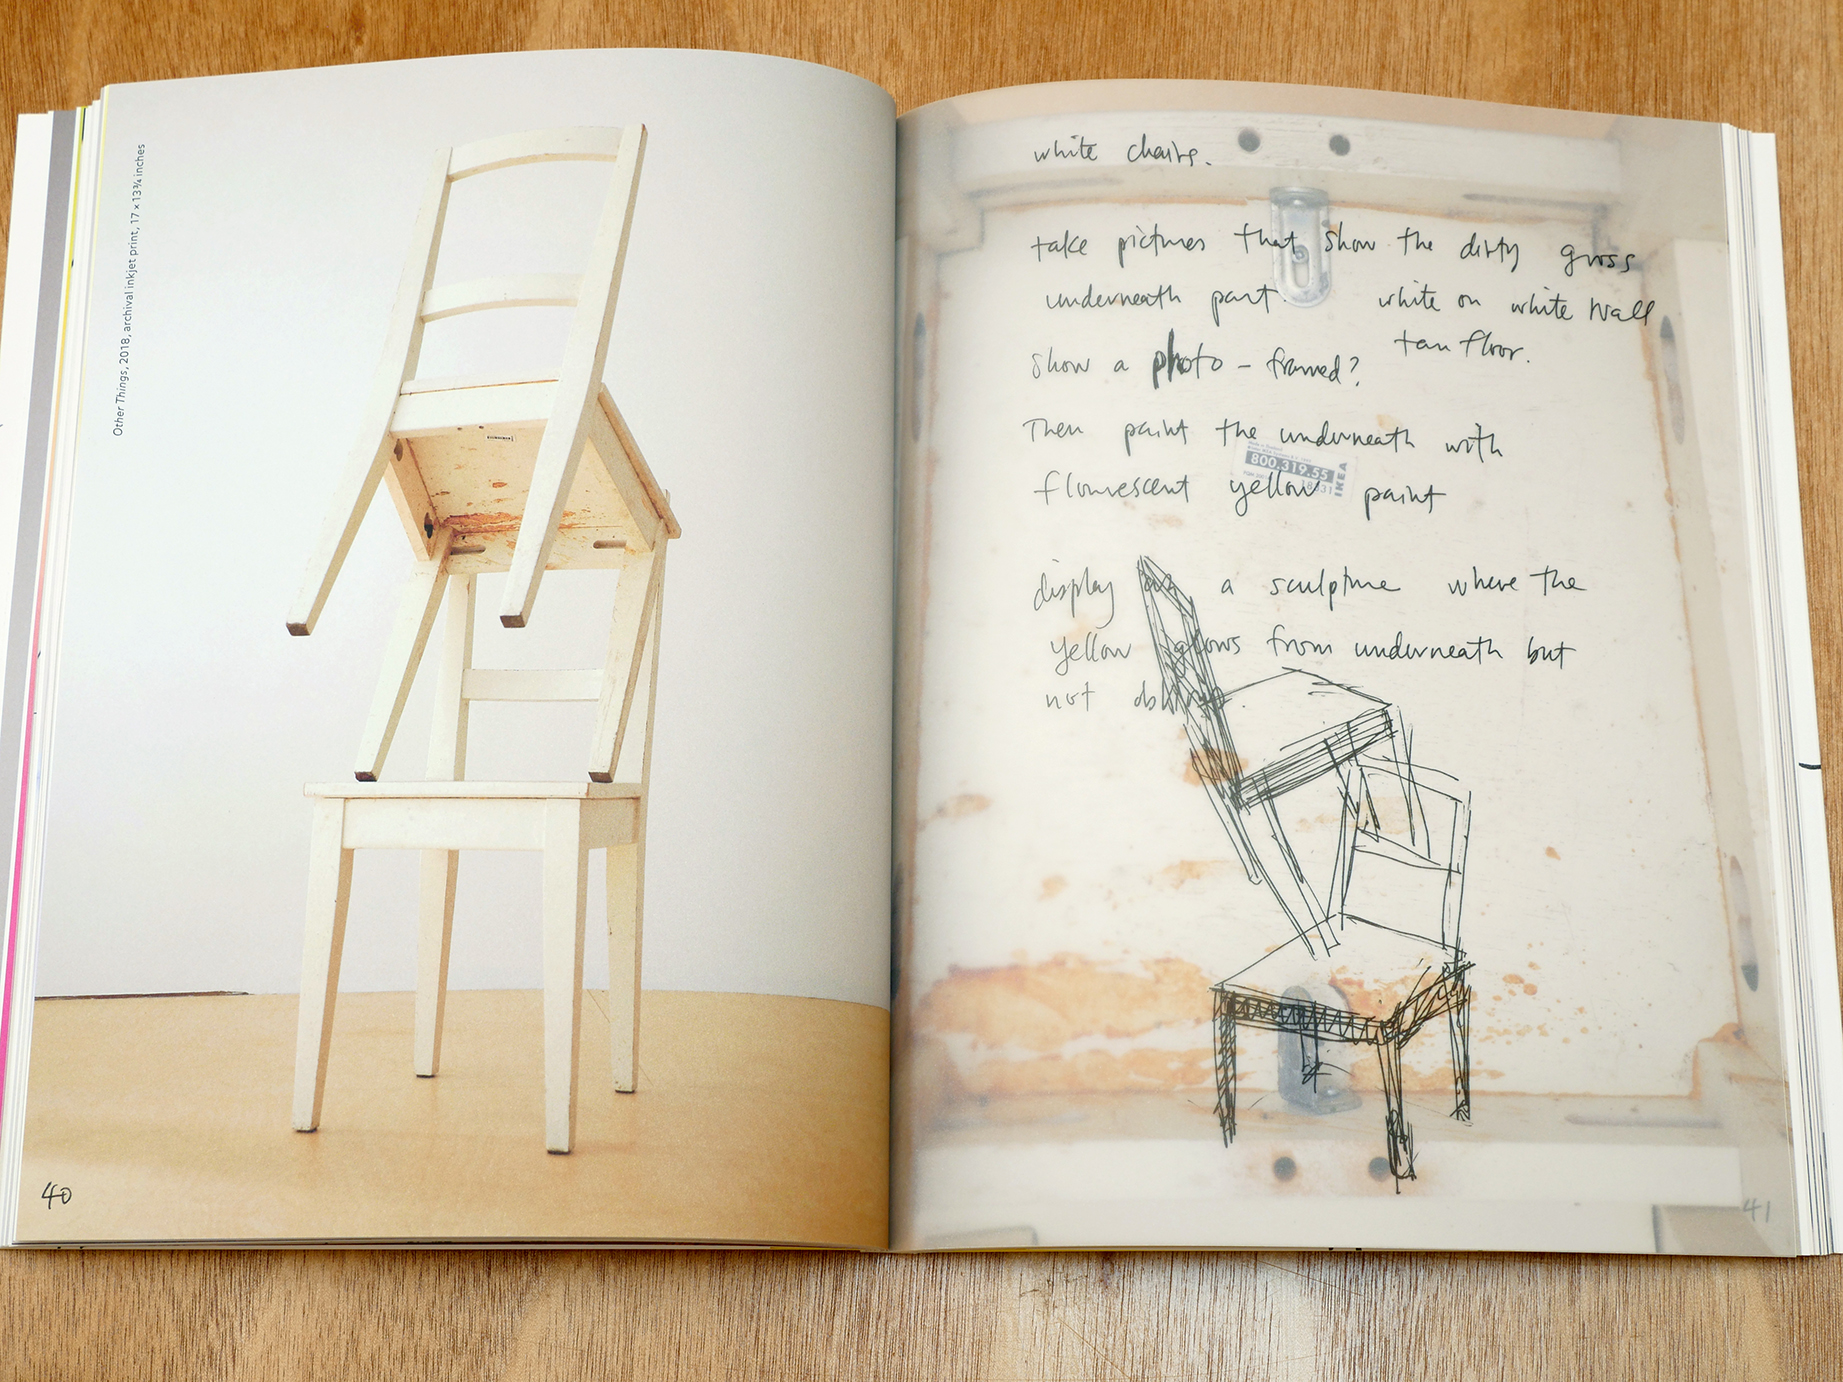 Other Things, 2018, archival inkjet print, 17 × 13 ¾ inches
40
white chairs.
take pictures that show the dirty gross
underneath part.
white on white wall
tan floor.
show a photo – framed?
Then paint the underneath with
flourescent yellow paint
800.319.55
IKEA
display a sculpture where the
yellow glows from underneath but
not
41